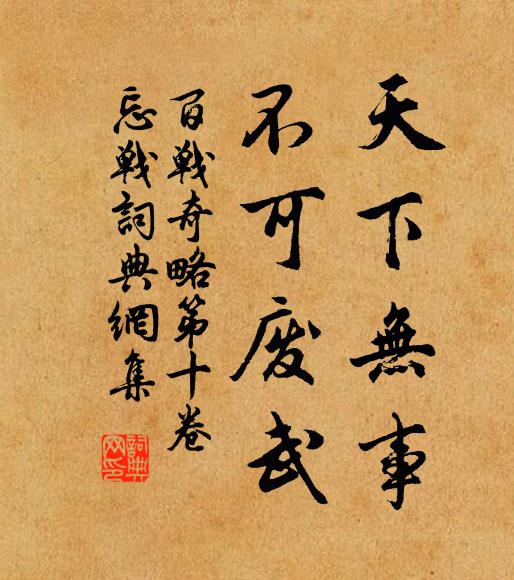 天下無事
不可废武
百戰奇略第十卷
忘戰詞典網集
詞典
网印